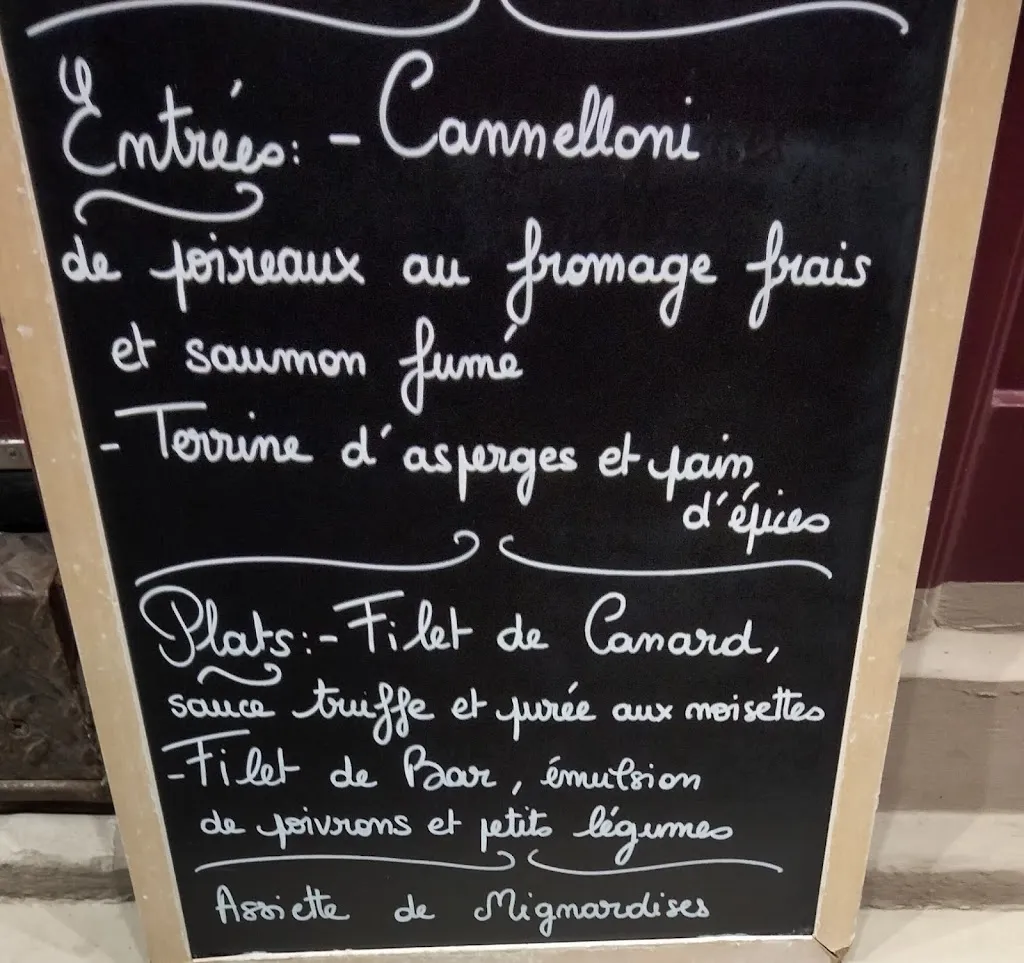 Entrées: - Cannelloni
de poireaux au fromage frais
et saumon fumé
- Terrine d'asperges et pain
d'épices
Plats: - Filet de Canard,
sauce truffe et purée aux noisettes
- Filet de Bar, émulsion
de poivrons et petits légumes
Assiette de Mignardises